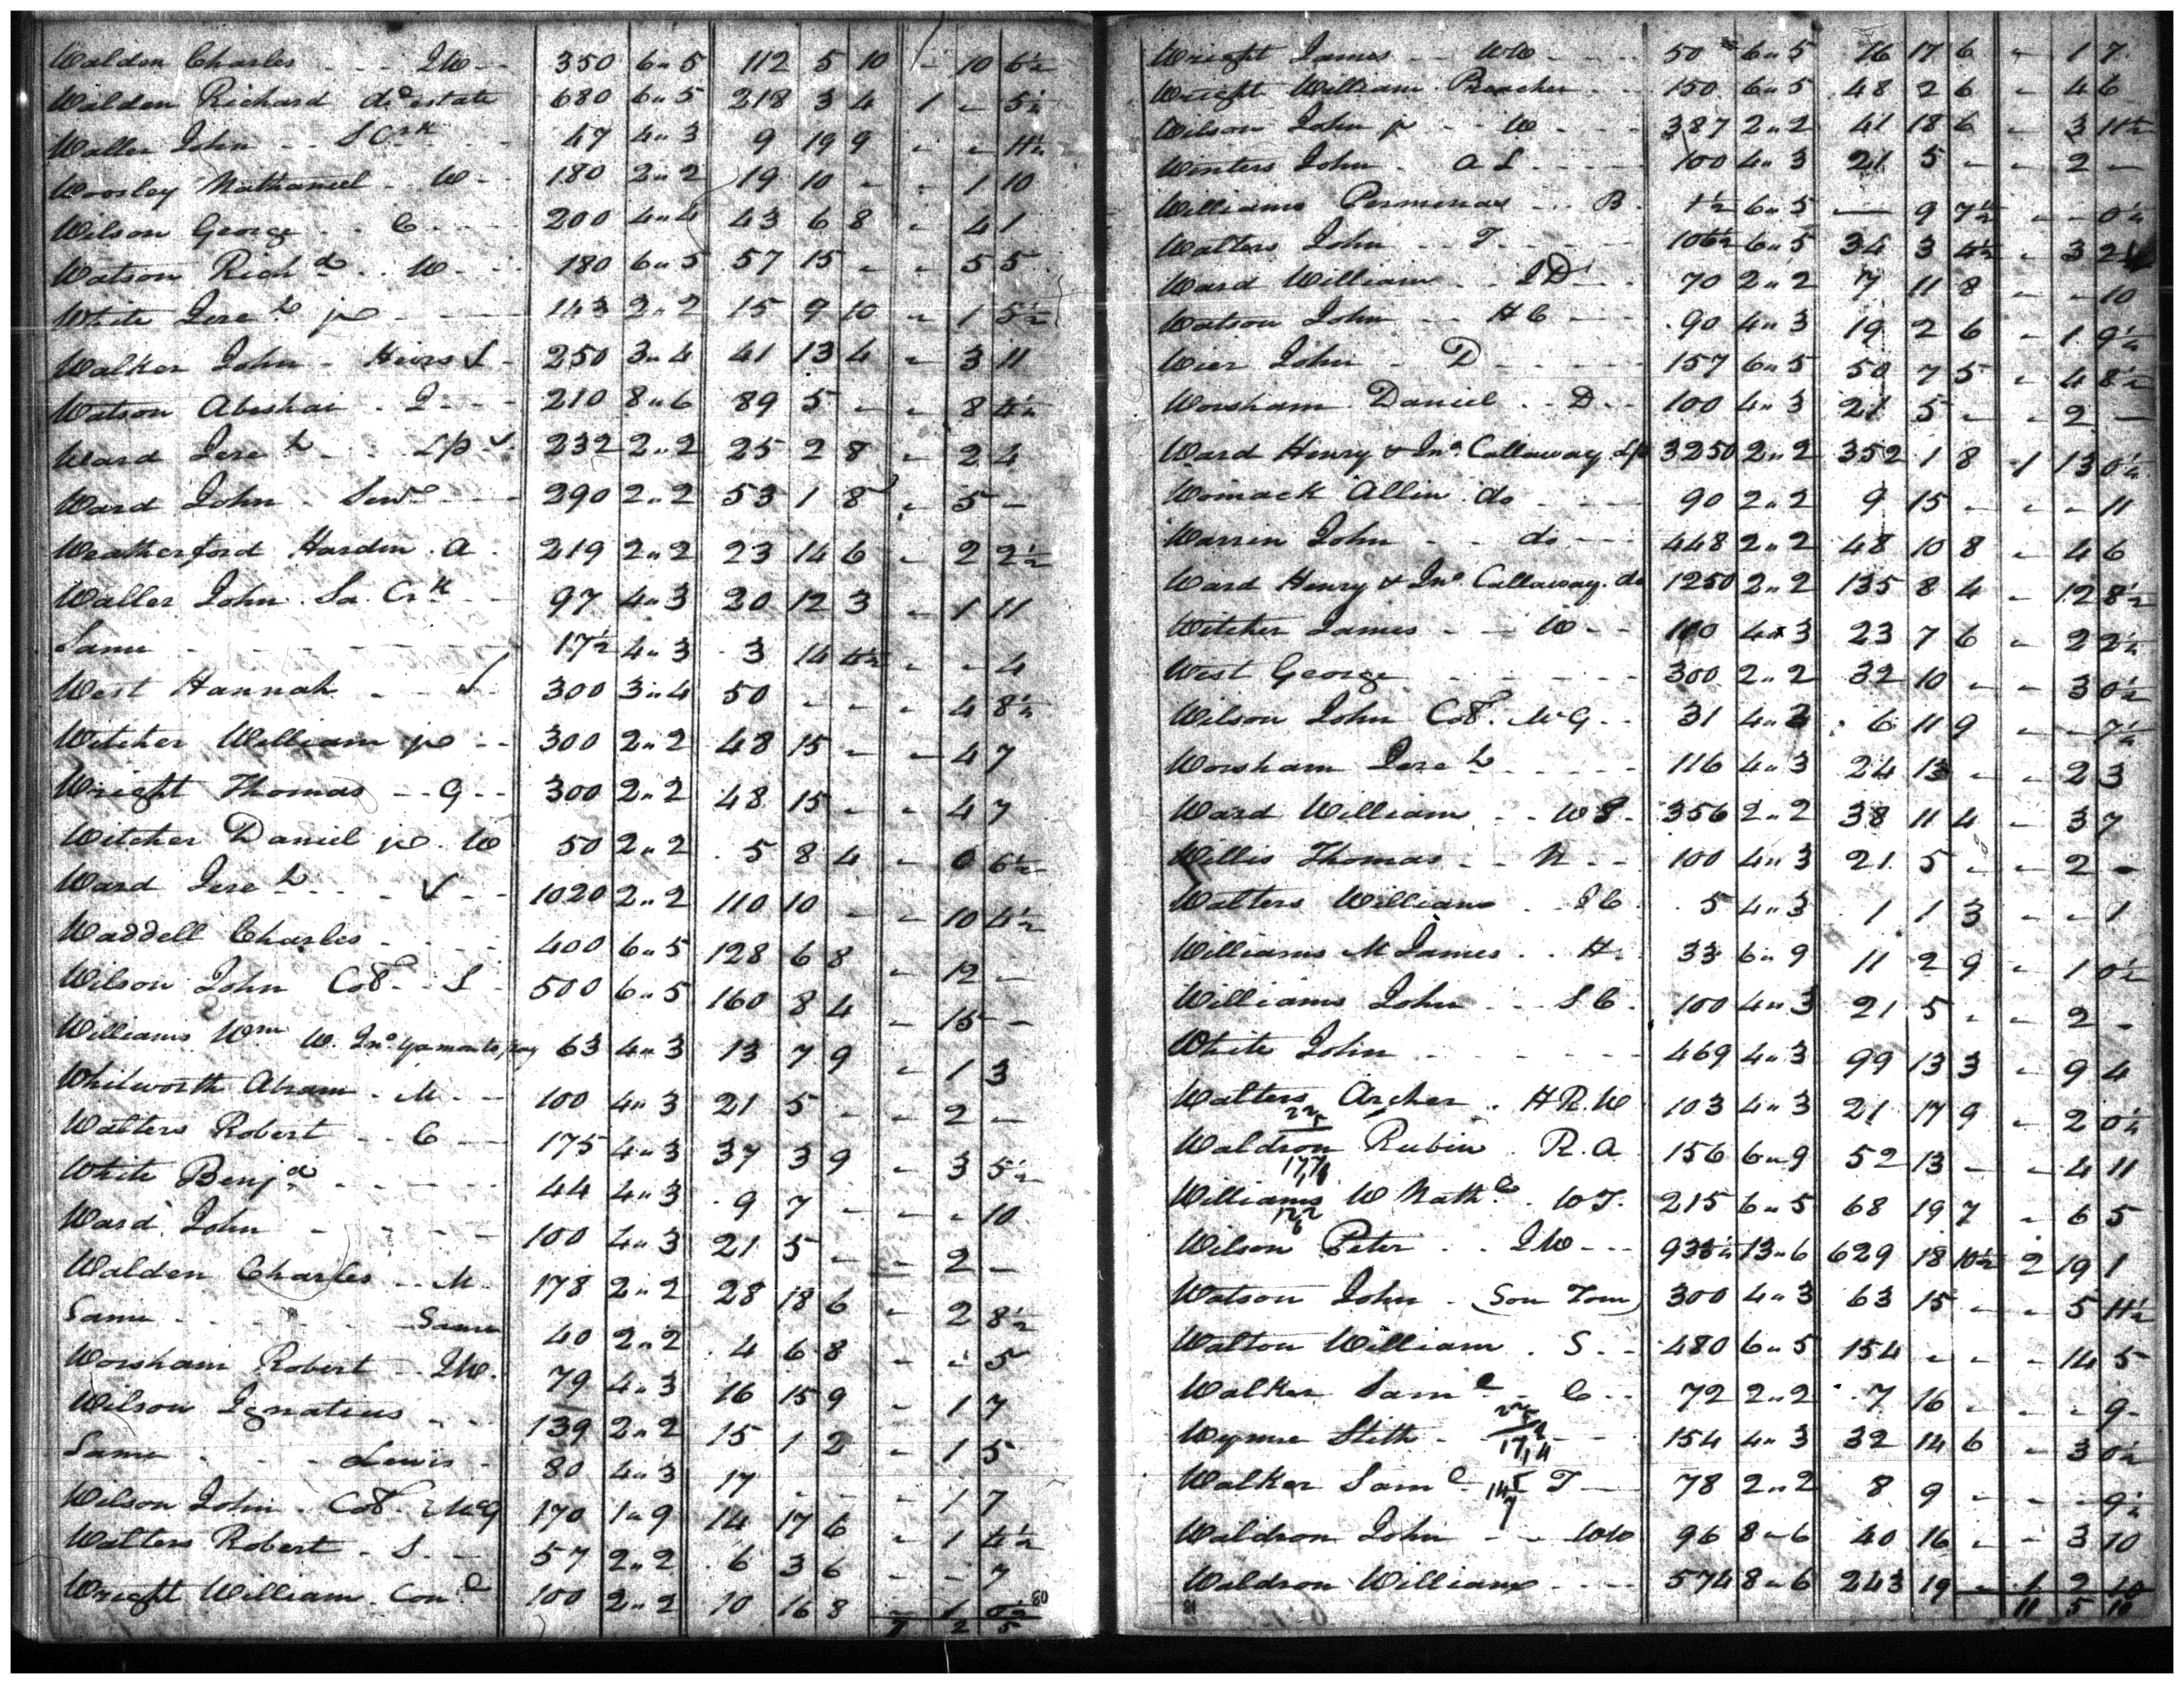 Walden Charles - - - JW - - 350 6 " 5 112 5 10 - 10 6½
Walden Richard decd estate 680 6 " 5 218 3 4 1 - 5½
Waller John - - S Crk 47 4 " 3 9 19 9 - - 11½
Woosley Nathaniel - W - 180 2 " 2 19 10 - - 1 10
Wilson George - - C - - 200 4 " 4 43 6 8 - 4 1
Watson Richd - - W - - 180 6 " 5 57 15 - - 5 5
White Jereh jr - - 143 2 " 2 15 9 10 - 1 5½
Walker John - Heirs S - 250 3 " 4 41 13 4 - 3 11
Watson Abeshai - J - - 210 8 " 6 89 5 - - 8 4½
Ward Jereh - - Lp ✓ 232 2 " 2 25 2 8 - 2 4
Ward John - Senr - - 290 2 " 2 53 1 8 - 5 -
Weatherford Hardin - A - 219 2 " 2 23 14 6 - 2 2½
Waller John - Sa. Crk - 97 4 " 3 20 12 3 - 1 11
Same - - - - 17½ 4 " 3 3 14 4½ - - 4
West Hannah - - S 300 3 " 4 50 - - - 4 8½
Witcher William jr - - 300 2 " 2 48 15 - - 4 7
Wright Thomas - - G - - 300 2 " 2 48 15 - - 4 7
Witcher Daniel jr - W 50 2 " 2 5 8 4 - 0 6½
Ward Jereh - - - ✓ - - 1020 2 " 2 110 10 - - 10 4½
Waddell Charles - - - - 400 6 " 5 128 6 8 - 12 -
Wilson John Col. - S - 500 6 " 5 160 8 4 - 15 -
Williams Wm W. Jno 63 4 " 3 13 7 9 - 1 3
Whitworth Abram - M - - 100 4 " 3 21 5 - - 2 -
Walters Robert - - C - - 175 4 " 3 37 3 9 - 3 5½
White Benja - - - - 44 4 " 3 9 7 - - - 10
Ward John - - - - 100 4 " 3 21 5 - - 2 -
Walden Charles - - M - 178 2 " 2 28 18 6 - 2 8½
Same - - - - Same 40 2 " 2 4 6 8 - - 5
Worsham Robert - - JW. 79 4 " 3 16 15 9 - 1 7
Wilson Ignatius - - - 139 2 " 2 15 1 2 - 1 5
Same - - - Lewis - 80 4 " 3 17 - - - 1 7
Wilson John - Col. McG 170 1 " 9 14 17 6 - 1 4½
Walters Robert - S. - - 57 2 " 2 6 3 6 - - 7
Wright William - Cond 100 2 " 2 10 16 8 - 1 0½
80
7 2 5
Wright James - - WW - - 50 6 " 5 16 17 6 - 1 7
Wright William Preacher - - 150 6 " 5 48 2 6 - 4 6
Wilson John jr - - W - - 387 2 " 2 41 18 6 - 3 11½
Winters John - A S - - - 100 4 " 3 21 5 - - 2 -
Williams Permenas - - B. 1½ 6 " 5 - 9 7½ - - 0½
Walters John - - T - - - 106½ 6 " 5 34 3 4½ - 3 2½
Ward William - - JD - - 70 2 " 2 7 11 8 - - 10
Watson John - - HC - - 90 4 " 3 19 2 6 - 1 9½
Wier John - D - - - 157 6 " 5 50 7 5 - 4 8½
Worsham Daniel - - D - - 100 4 " 3 21 5 - - 2 -
Ward Henry & Jno. Callaway Lp 3250 2 " 2 352 1 8 1 13 0½
Womack Allin do - - 90 2 " 2 9 15 - - - 11
Warrin John - - do - - 448 2 " 2 48 10 8 - 4 6
Ward Henry & Jno Callaway. do 1250 2 " 2 135 8 4 - 12 8½
Witcher James - - W - - 110 4 " 3 23 7 6 - 2 2½
West George - - - - 300 2 " 2 32 10 - - 3 0½
Wilson John Col. McG - - 31 4 " 3 6 11 9 - - 7½
Worsham Jereh - - - - 116 4 " 3 24 13 - - 2 3
Ward William - - WS - 356 2 " 2 38 11 4 - 3 7
Willis Thomas - - N - - 100 4 " 3 21 5 - - 2 -
Walters William - - SC 5 4 " 3 1 1 3 - - 1
Williams M James - - H. 33 6 " 9 11 2 9 - 1 0½
Williams John - - SC. 100 4 " 3 21 5 - - 2 -
White John - - - - 469 4 " 3 99 13 3 - 9 4
Walters Archer - HR.W 103 4 " 3 21 17 9 - 2 0½
Waldron Rubin - R.A 156 6 " 9 52 13 - - 4 11
Williams W Nathl. - WT. 215 6 " 5 68 19 7 - 6 5
Wilson Peter - - JW - - 933½ 13 " 6 629 18 10½ 2 19 1
Watson John - (Son Tom) 300 4 " 3 63 15 - - 5 11½
Walton William - S - - 480 6 " 5 154 - - - 14 5
Walker Saml - C - - 72 2 " 2 7 16 - - - 9
Wynne Stith - - - 154 4 " 3 32 14 6 - 3 0½
Walker Saml - T - 78 2 " 2 8 9 - - - 9½
Waldron John - - WW 96 8 " 6 40 16 - - 3 10
Waldron William - - - 574 8 " 6 243 19 - 1 2 10
81
11 5 10